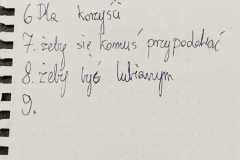 6 Dla korzyści
7. żeby się komuś przypodobać
8. żeby być lubianym
9.